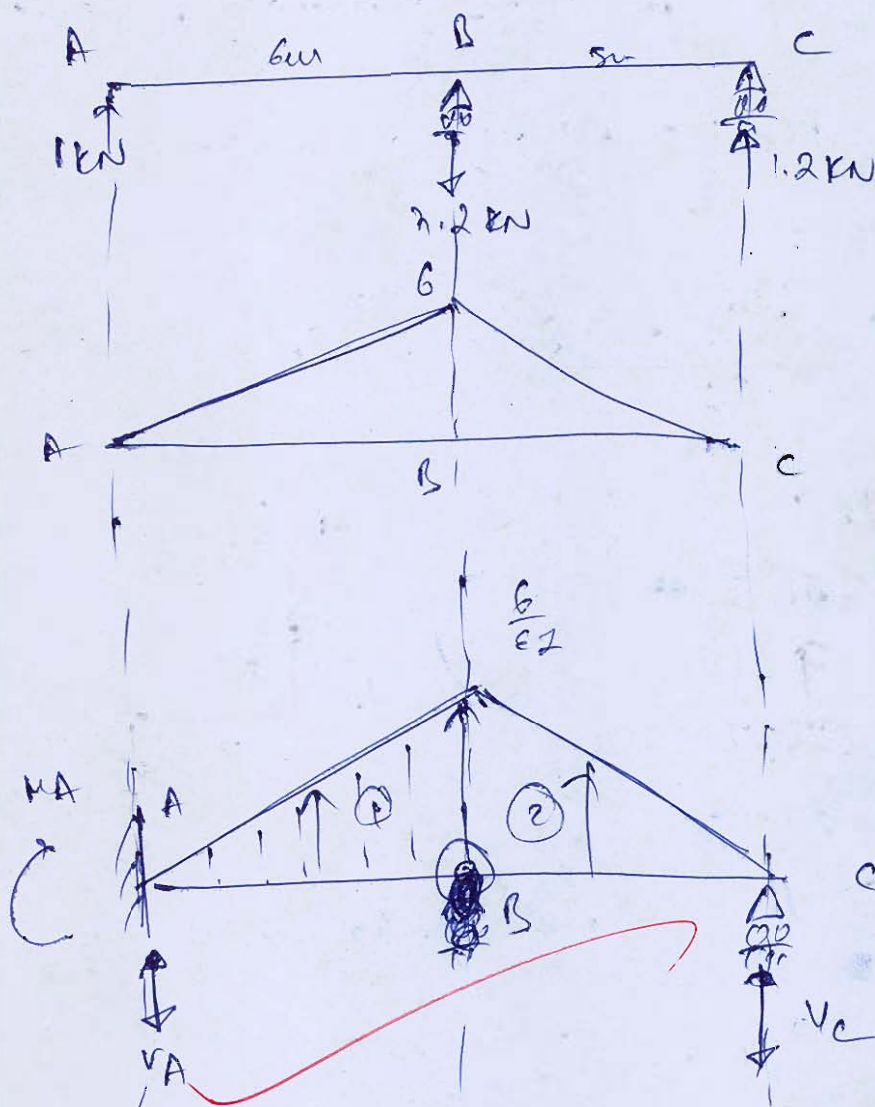 A 6m B 5m C
1KN
2.2 KN
1.2 KN
6
A B C
6
EI
MA A ① ② C
B
VA
VC